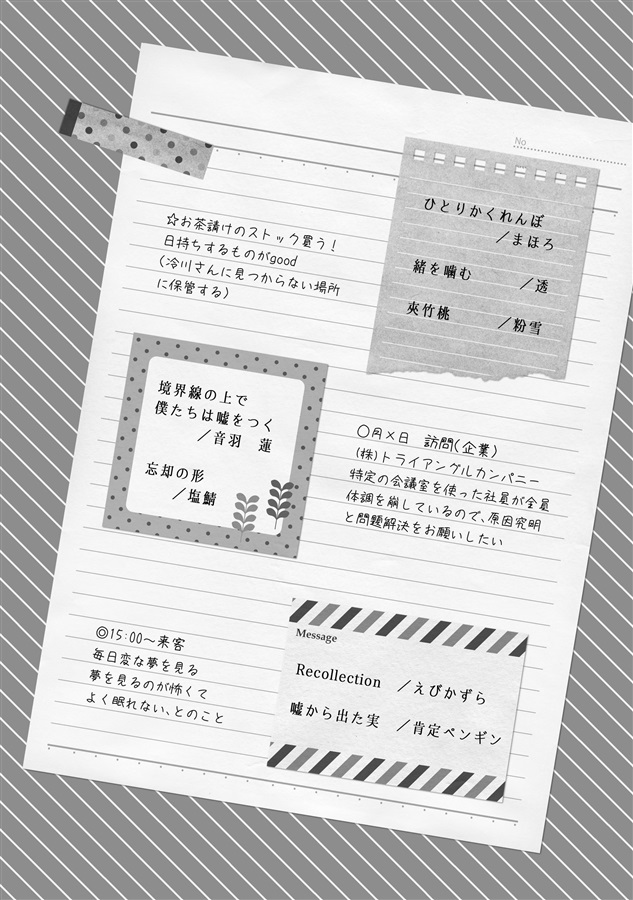 No
ひとりかくれんぼ
／まほろ
緒を噛む ／透
夾竹桃 ／粉雪
☆お茶請けのストック買う！
日持ちするものがgood
（冷川さんに見つからない場所
に保管する）
境界線の上で
僕たちは嘘をつく
／音羽 蓮
忘却の形
／塩鯖
○月×日 訪問（企業）
（株）トライアングルカンパニー
特定の会議室を使った社員が全員
体調を崩しているので、原因究明
と問題解決をお願いしたい
◎15:00～来客
毎日変な夢を見る
夢を見るのが怖くて
よく眠れない、とのこと
Message
Recollection ／えびかずら
嘘から出た実 ／肯定ペンギン